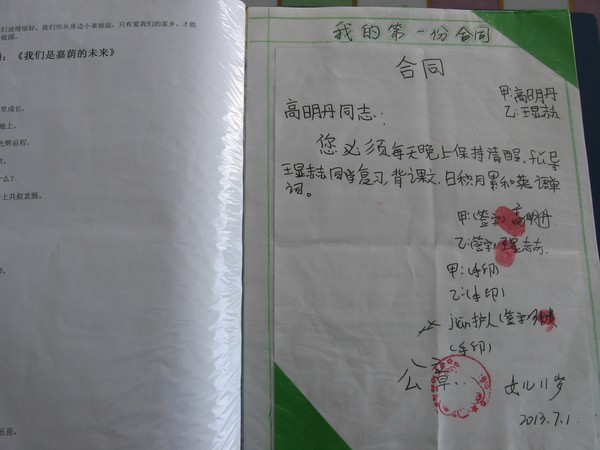 们说得很好，我们应从身边小事做起，只有爱我们的家乡，才能
祖国。
：《我们是嘉荫的未来》
里成长，
地上，
光辉前程，
什么？
上共叙衷肠。
五岳，
我的第一份合同
合同
甲:高明丹
乙:王显喆
高明丹同志：
您必须每天晚上保持清醒，辅导
王显喆同学复习，背课文，日积月累和英语单
词。
甲:(签字)高明丹
乙:(签字)王显喆
甲:(手印)
乙:(手印)
jiān护人(签字)
(手印)
公章:
女儿11岁
2013.7.1